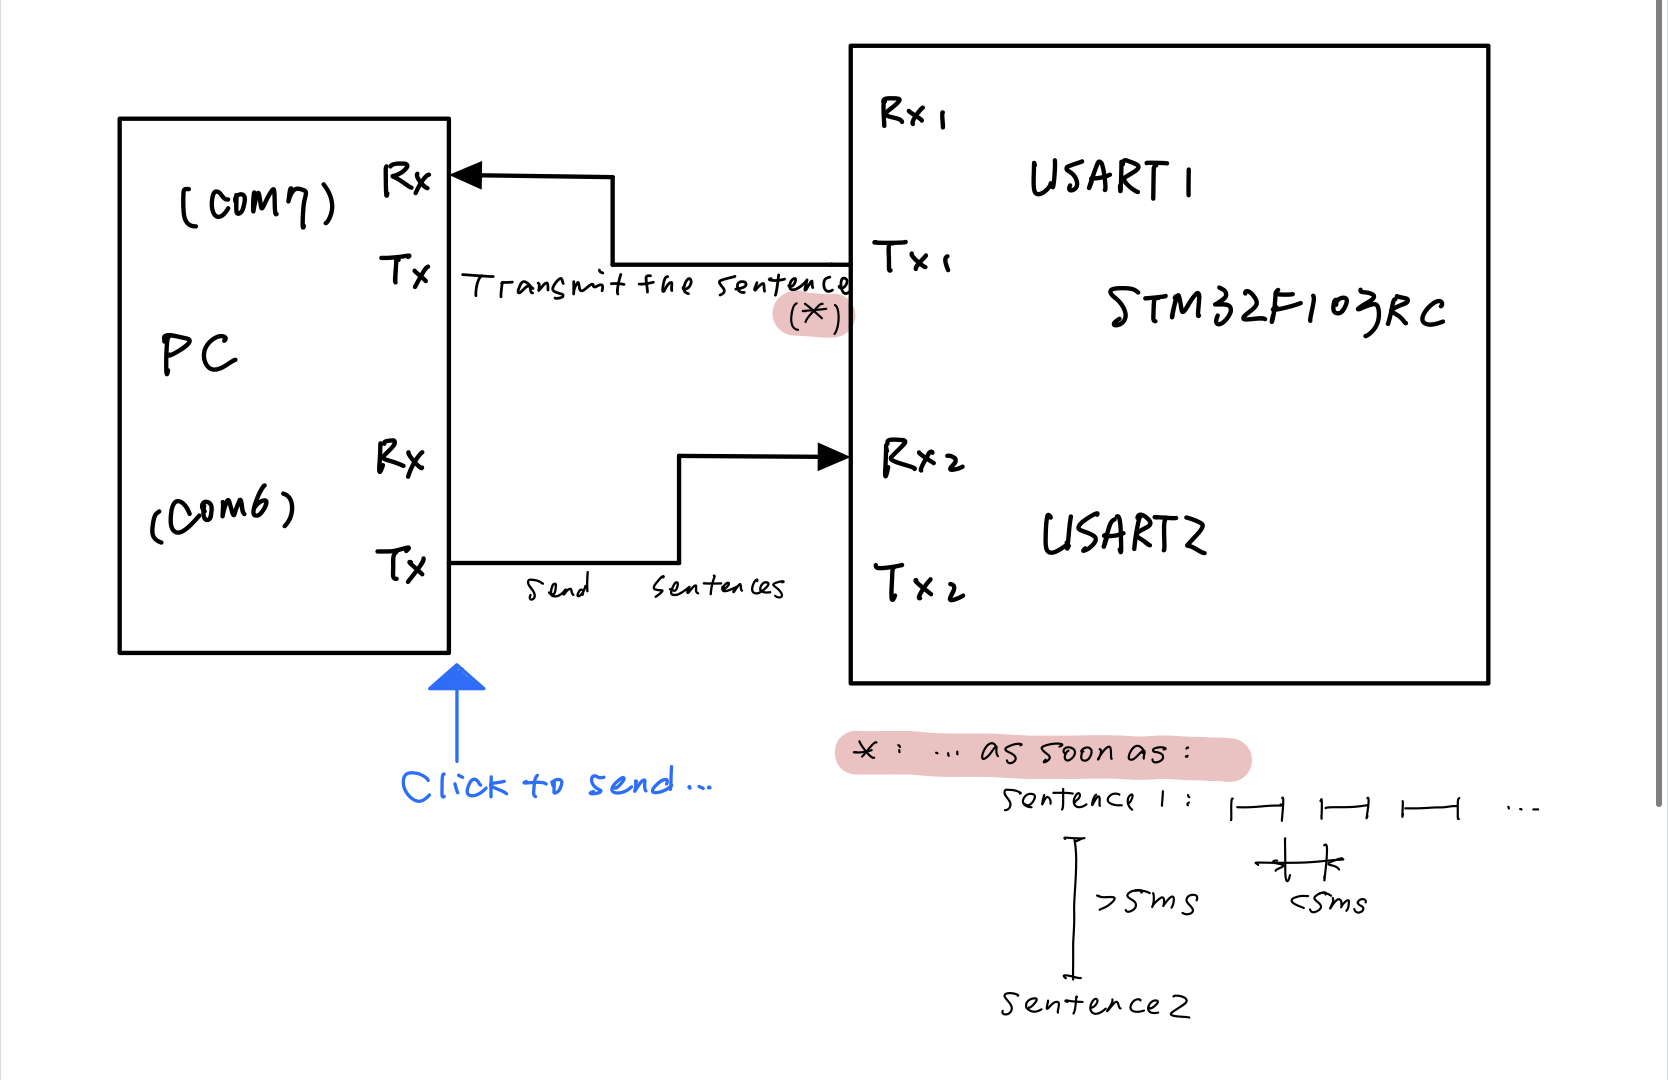 (COM7)
Rx
Tx
PC
Rx
(COM6)
Tx
Transmit the sentence
(*)
Send sentences
Click to send...
Rx1
USART1
Tx1
STM32F103RC
Rx2
USART2
Tx2
*: ... as soon as:
Sentence 1: ...
>5ms
<5ms
Sentence2